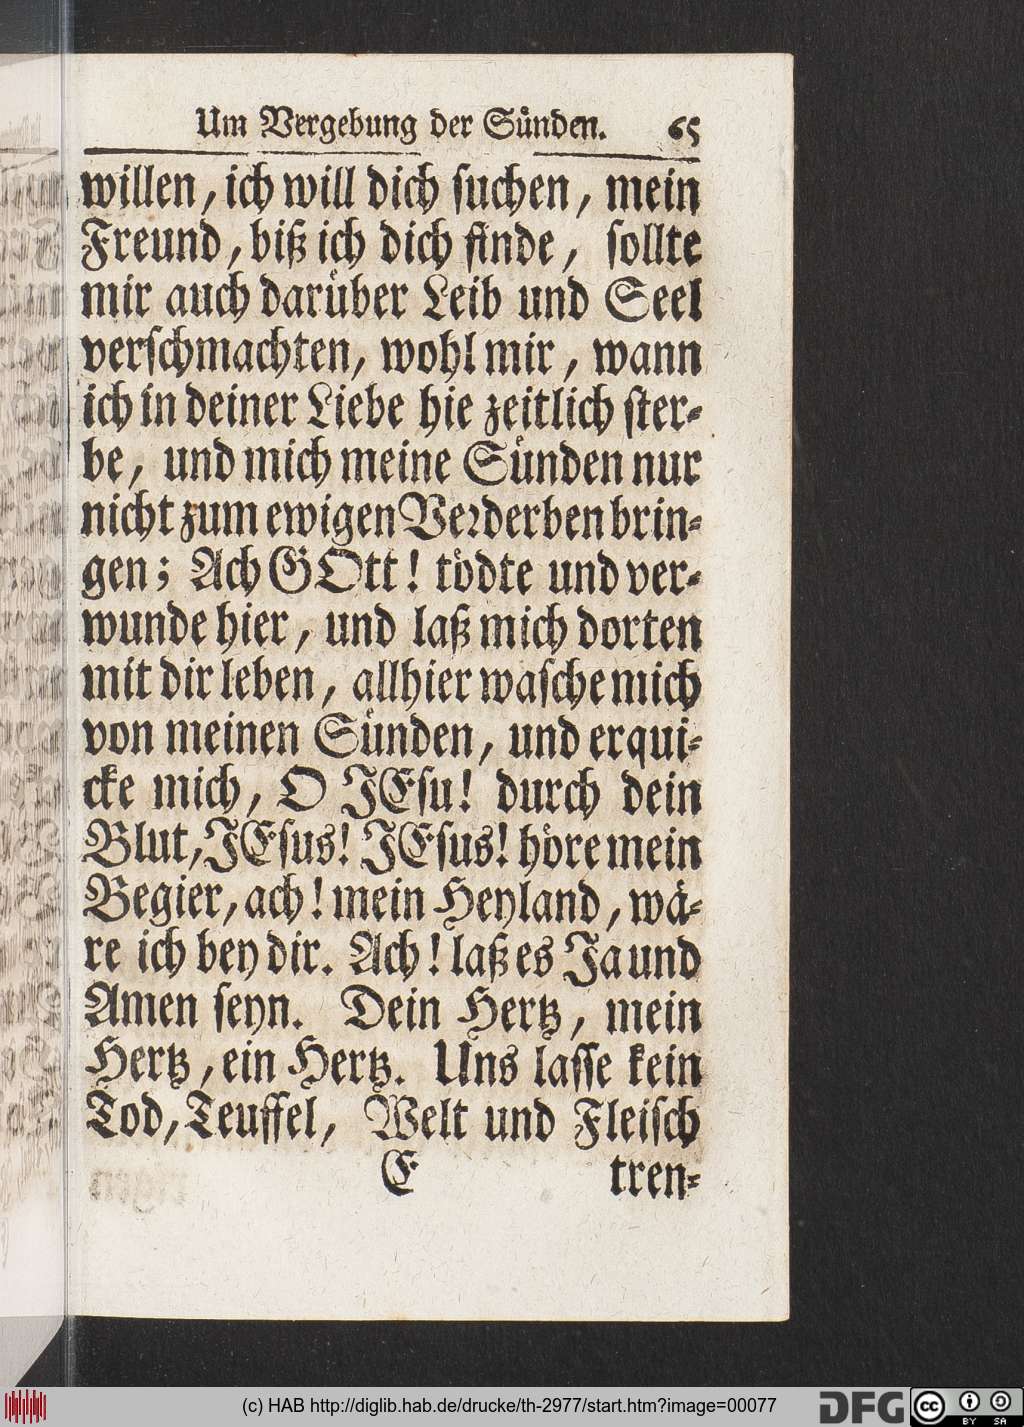 Um Vergebung der Sünden. 65
willen, ich will dich suchen, mein
Freund, biß ich dich finde, sollte
mir auch darüber Leib und Seel
verschmachten, wohl mir, wann
ich in deiner Liebe hie zeitlich ster-
be, und mich meine Sünden nur
nicht zum ewigen Verderben brin-
gen; Ach GOtt! tödte und ver-
wunde hier, und laß mich dorten
mit dir leben, allhier wasche mich
von meinen Sünden, und erqui-
cke mich, O JEsu! durch dein
Blut, JEsus! JEsus! höre mein
Begier, ach! mein Heyland, wä-
re ich bey dir. Ach! laß es Ja und
Amen seyn. Dein Hertz, mein
Hertz, ein Hertz. Uns lasse kein
Tod, Teuffel, Welt und Fleisch
E tren-
(c) HAB http://diglib.hab.de/drucke/th-2977/start.htm?image=00077
DFG
cc BY SA